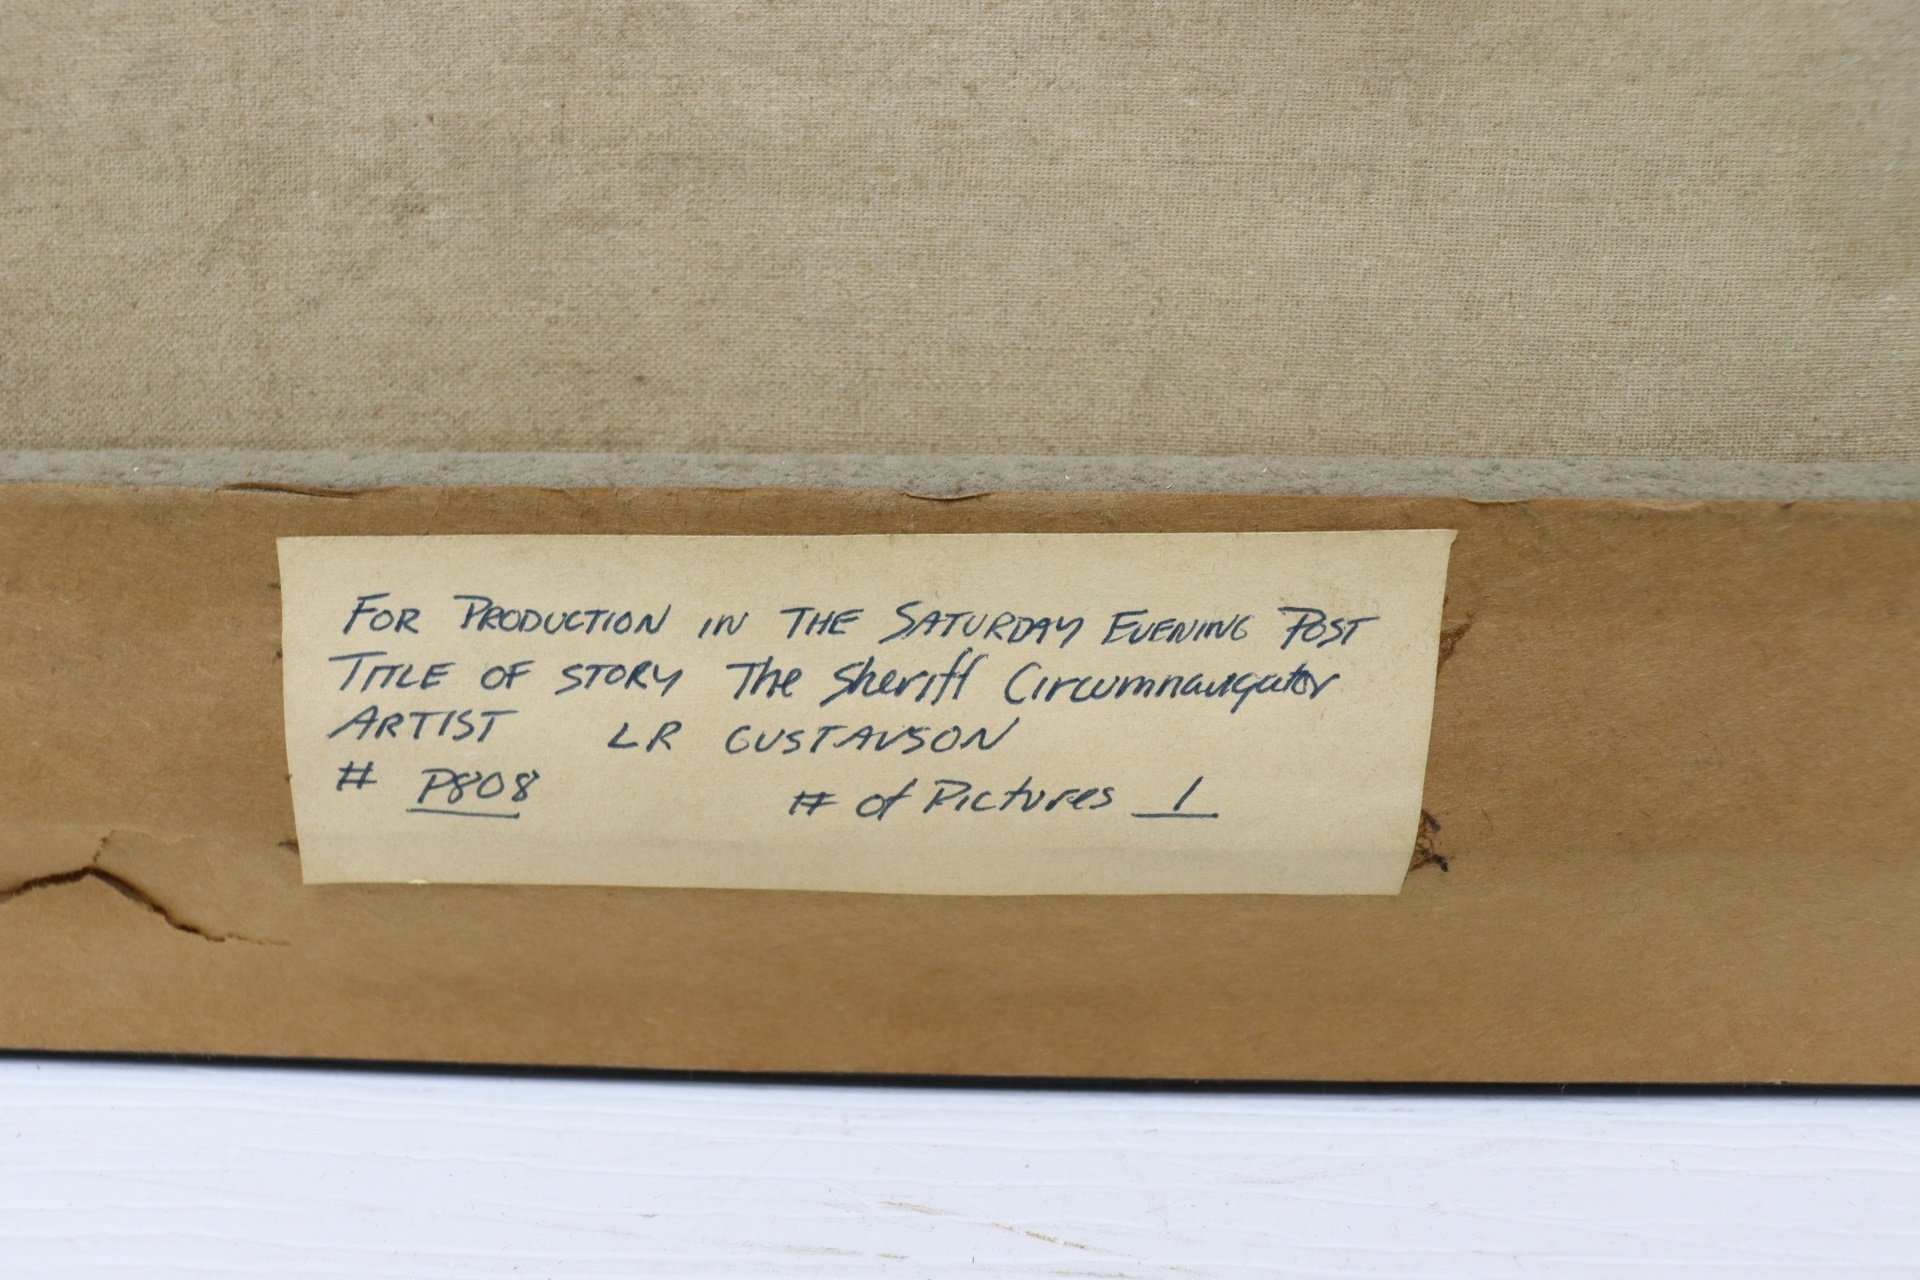 FOR PRODUCTION IN THE SATURDAY EVENING POST
TITLE OF STORY The Sheriff Circumnavigator
ARTIST LR GUSTAVSON
# P808 # of Pictures 1